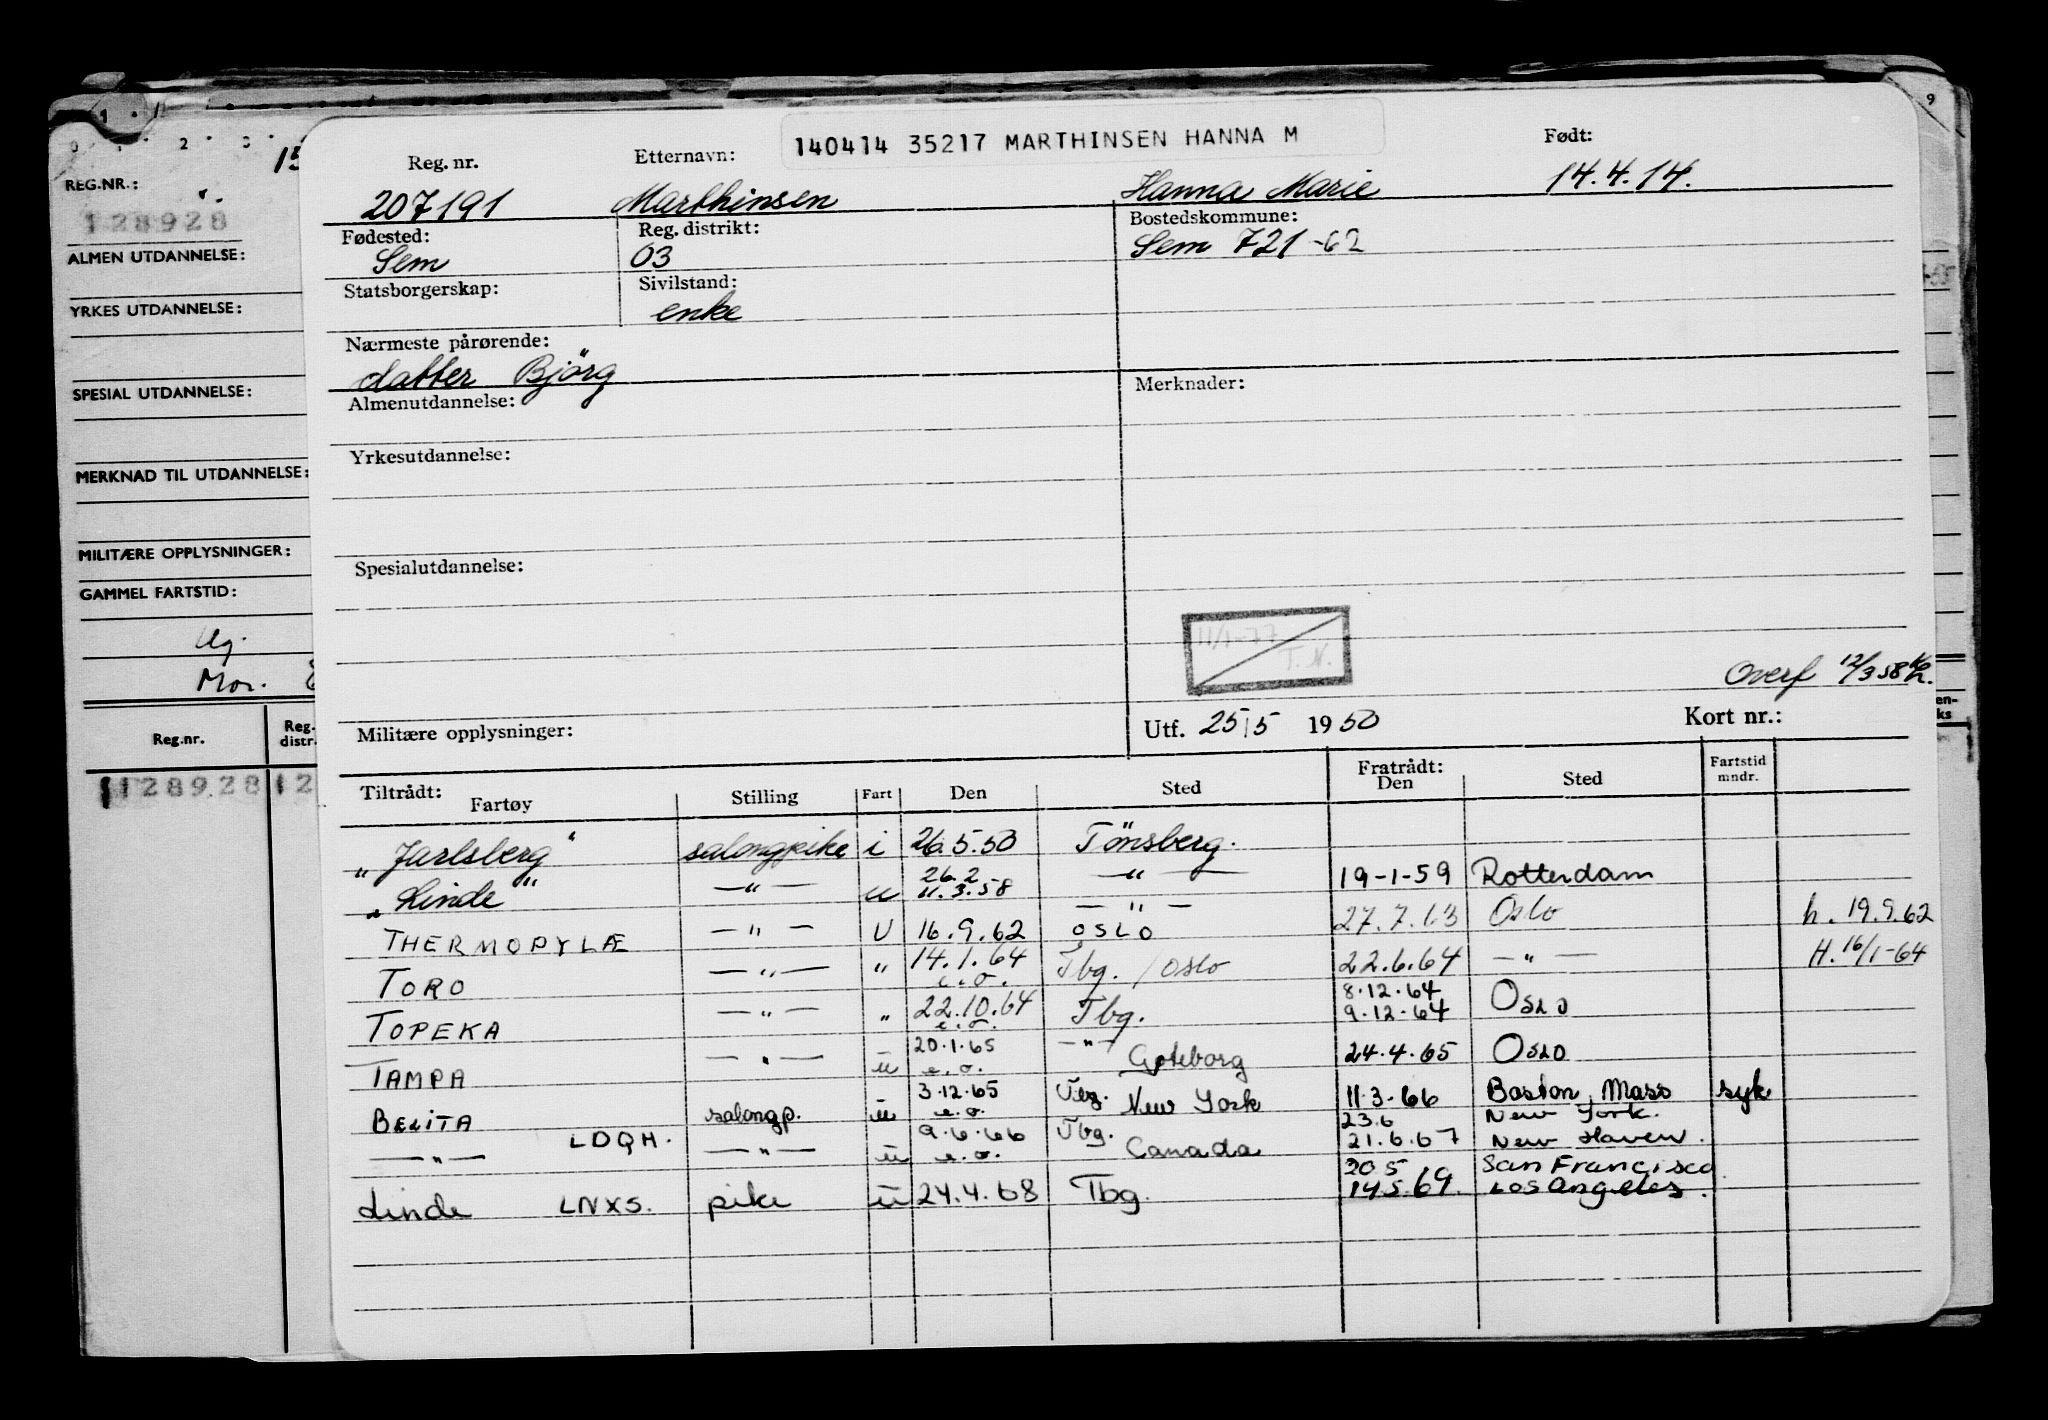 140414 35217 MARTHINSEN HANNA M
Reg. nr. Etternavn: Født:
207191 Marthinsen Hanna Marie 14.4.14.
Fødested: Reg. distrikt: Bostedskommune:
Sem 03 Sem 721-62
Statsborgerskap: Sivilstand:
enke
Nærmeste pårørende:
datter Björg
Almenutdannelse: Merknader:
Yrkesutdannelse:
Spesialutdannelse:
11/1-77
T. N.
Overf 12/3 58
Militære opplysninger: Utf. 25/5 1950 Kort nr.:
Tiltrådt: Fratrådt: Fartstid
Fartøy Stilling Fart Den Sted Den Sted mndr.
"Jarlsberg" salongpike i 26.5.50 Tönsberg.
26.2.
"Linde" —"— u 11.3.58 —"— 19-1-59 Rotterdam
THERMOPYLÆ —"— U 16.9.62 —"— OSLO 27.7.63 Oslo h. 19.9.62
TORO —"— " 14.1.64 e.o. Tbg. / Oslo 22.6.64 —"— H. 16/1-64
8.12.64
TOPEKA —"— " 22.10.64 e.o. Tbg. 9.12.64 OSLO
TAMPA —"— u 20.1.65 e.o. —"— Göteborg 24.4.65 OSLO
BELITA salongp. u 3.12.65 e.o. Tbg. New York 11.3.66 Boston, Mass syk
23.6 New York.
—"— LDQH. —"— u 9.6.66 e.o. Tbg. Canada 21.6.67 New Haven.
20.5 San Francisco
Linde LNXS. pike u 24.4.68 Tbg. 14.5.69. Los Angeles.
1
0 1 2 3
15
REG.NR.:
128928
ALMEN UTDANNELSE:
YRKES UTDANNELSE:
SPESIAL UTDANNELSE:
MERKNAD TIL UTDANNELSE:
MILITÆRE OPPLYSNINGER:
GAMMEL FARTSTID:
Mor.
Reg.nr. Reg. distr.
128928 12
9
en-
ks